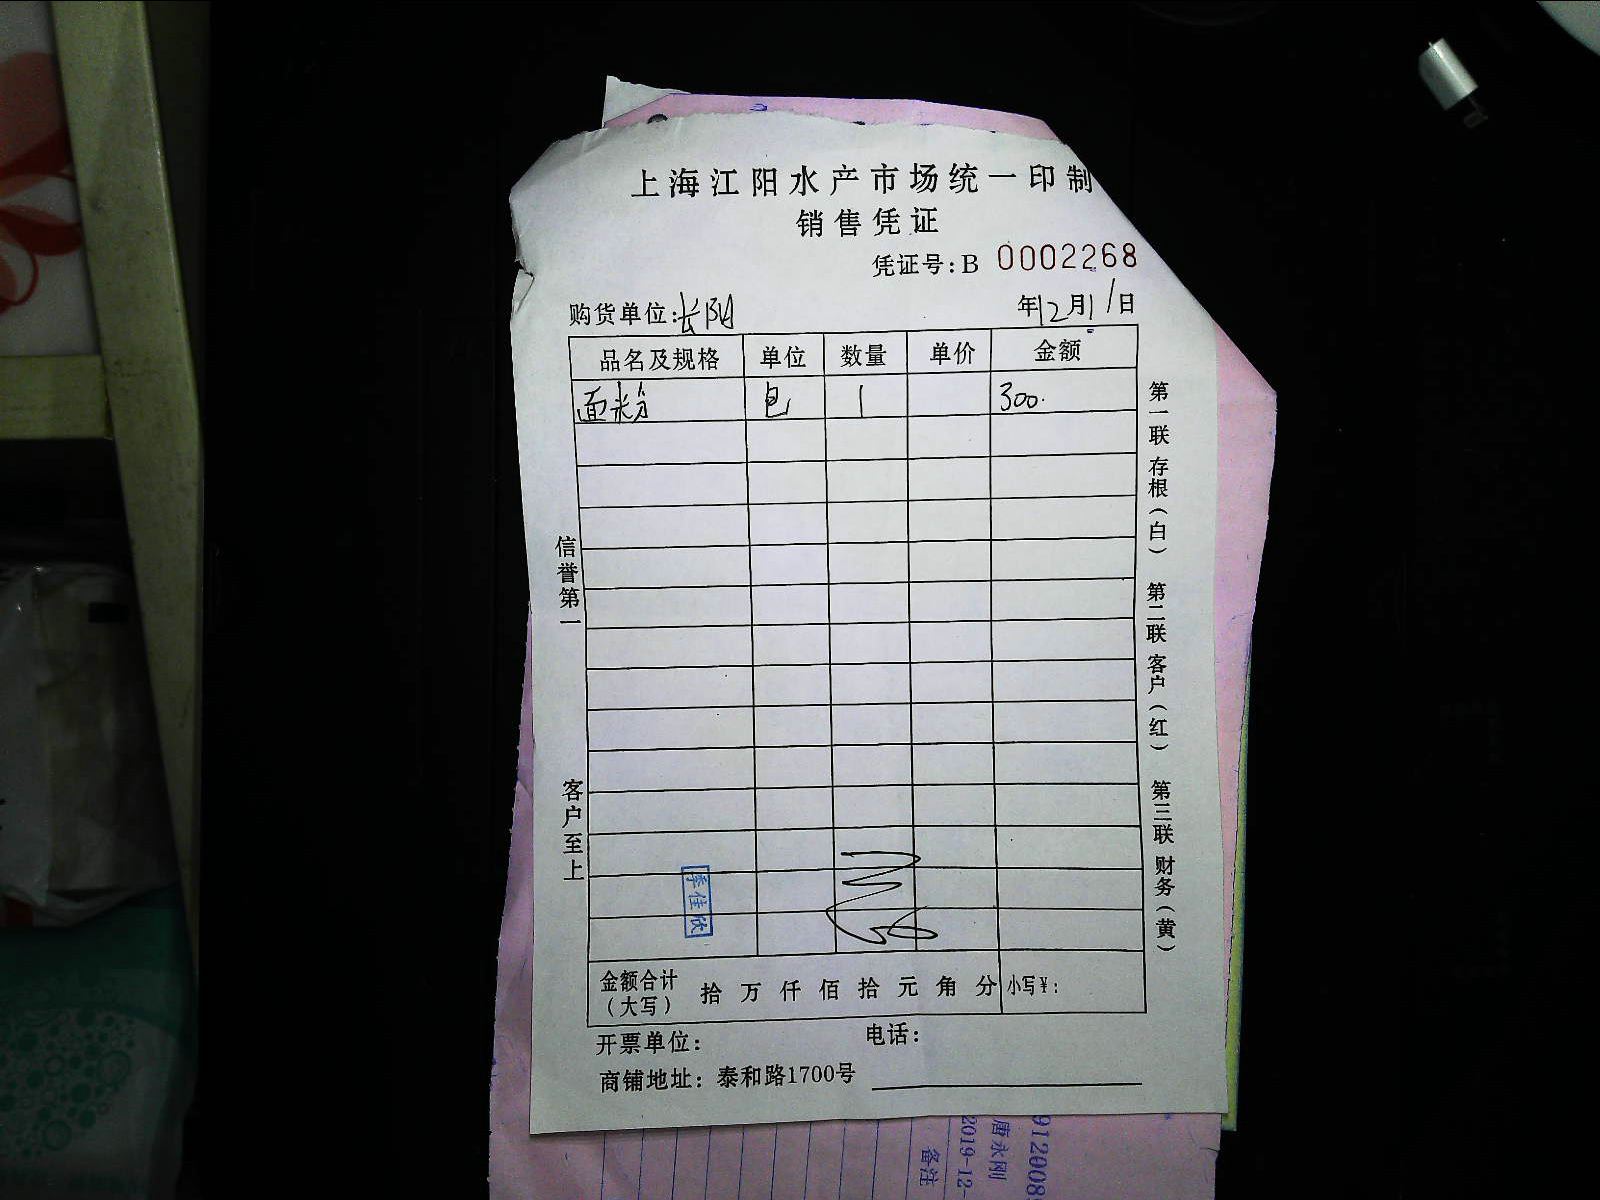 上海江阳水产市场统一印制
销售凭证
凭证号:B 0002268
购货单位:长阳 年12月11日
品名及规格 单位 数量 单价 金额
面粉 包 1 300.
信誉第一
客户至上
第一联 存根(白) 第二联 客户(红) 第三联 财务(黄)
季佳欣
金额合计(大写) 拾 万 仟 佰 拾 元 角 分 小写¥:
开票单位: 电话:
商铺地址:泰和路1700号
912008
唐永刚
2019-12-
备注